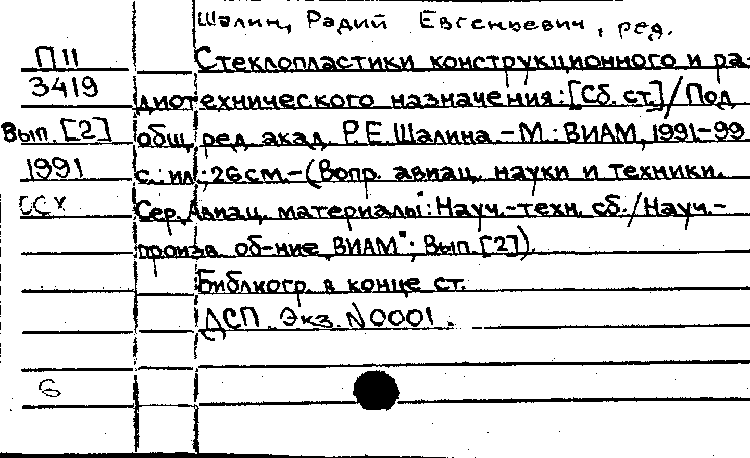 Шалин, Радий Евгеньевич, ред.
П11 Стеклопластики конструкционного и ра-
3419 диотехнического назначения: [Сб. ст.] / Под
Вып. [2] общ. ред. акад. Р.Е. Шалина. - М.: ВИАМ, 1991-99
1991 с.: ил.; 26 см. - (Вопр. авиац. науки и техники.
Сер. Авиац. материалы": Науч.-техн. сб. / Науч.-
произв. об-ние "ВИАМ"; Вып. [2]).
Библиогр. в конце ст.
ДСП. Экз. N 0001.
6